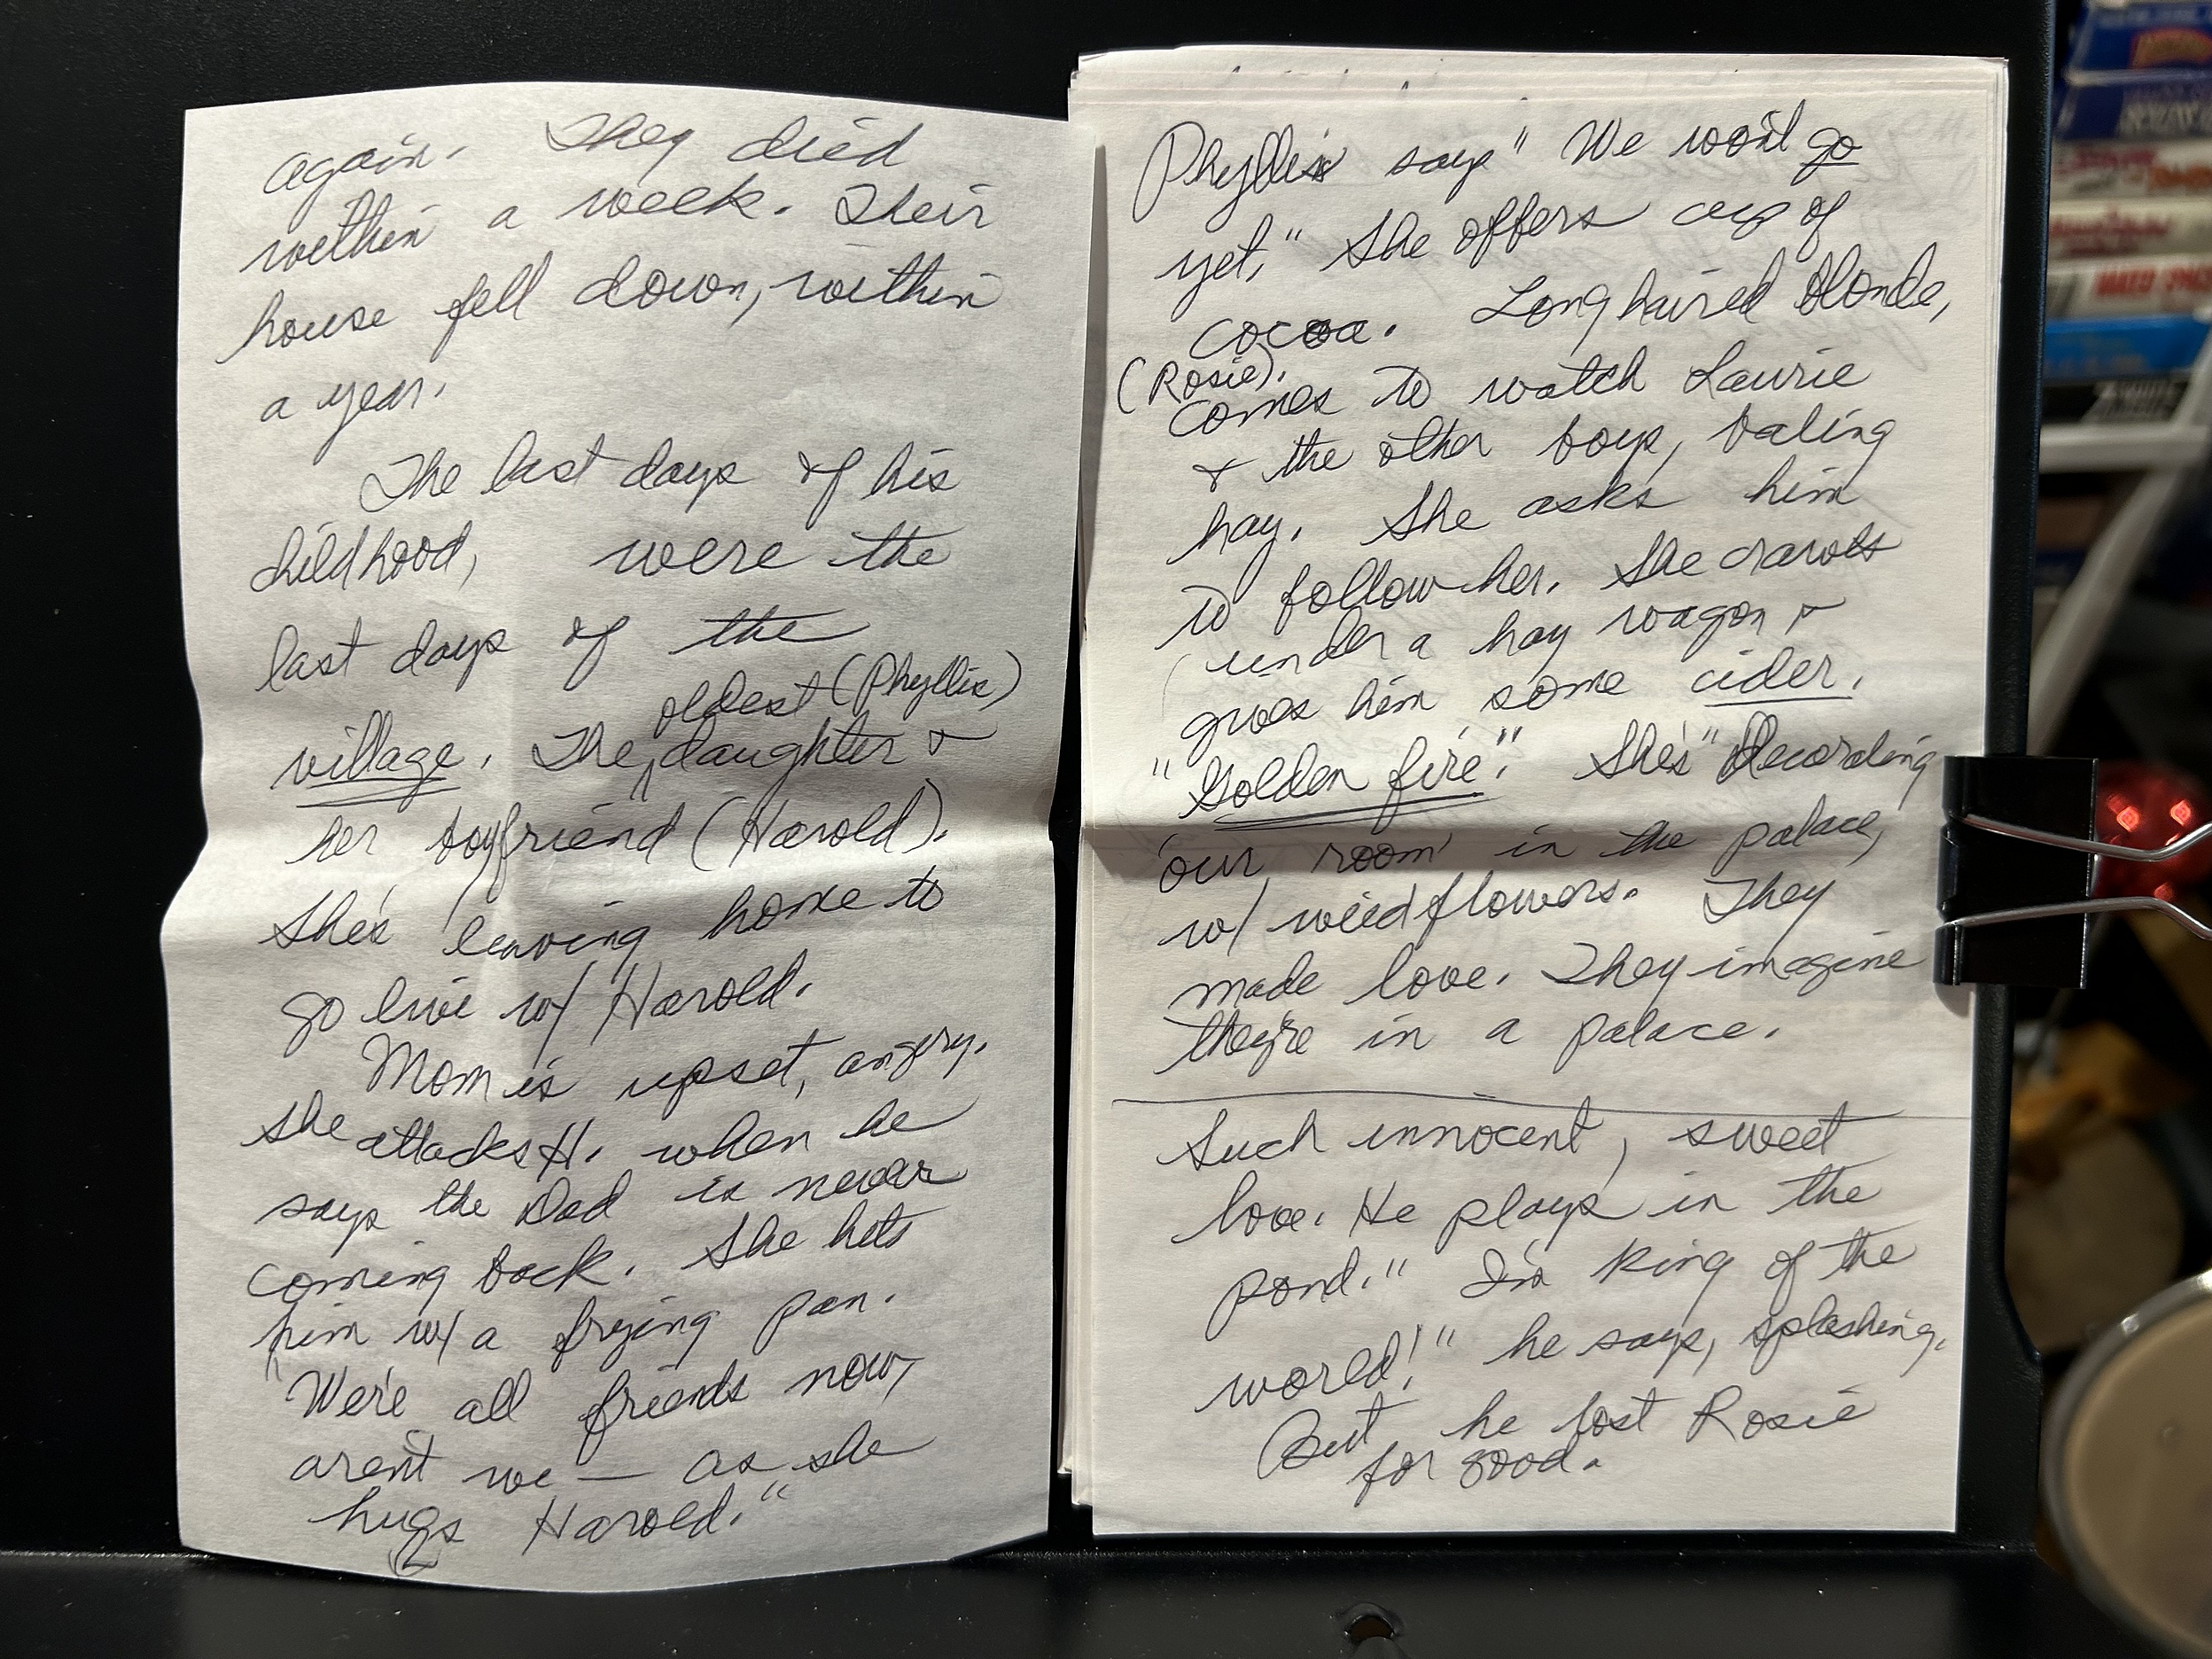 again. They died
within a week. Their
house fell down, within
a year.
The last days of his
childhood, were the
last days of the
oldest (Phyllis)
village. The daughter &
her boyfriend (Harold).
She's leaving home to
go live w/ Harold.
Mom is upset, angry.
She attacks H. when he
says the Dad is never
coming back. She hits
him w/ a frying pan.
"We're all friends now,
aren't we — as she
hugs Harold."
Phyllis says "We won't go
yet." She offers cup of
cocoa. Long haired blonde,
(Rosie).
comes to watch Laurie
& the other boys, baling
hay. She asks him
to follow her. She crawls
under a hay wagon &
gives him some cider.
"Golden fire". She's "Decorating
'our room' in the palace,
w/ weedflowers. They
made love. They imagine
they're in a palace.
Such innocent, sweet
love. He plays in the
pond." I'm King of the
world!" he says, splashing.
But he lost Rosie
for good.